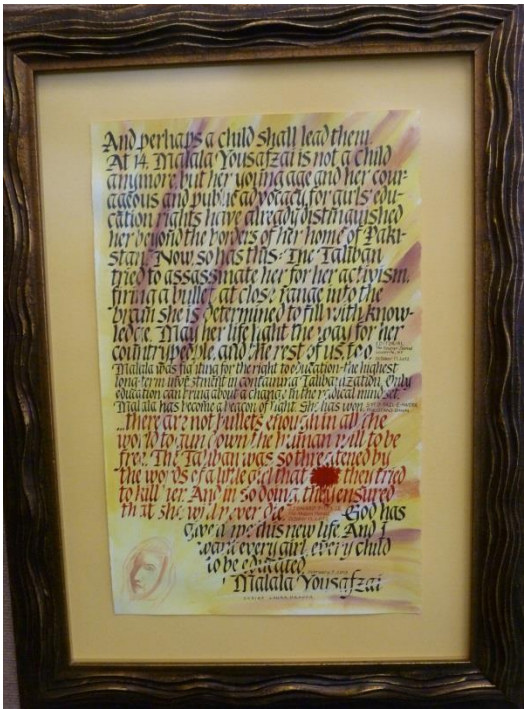 And perhaps a child shall lead them
At 14, Malala Yousafzai is not a child
anymore, but her young age and her cour-
ageous and public advocacy for girls' edu-
cation rights have already distinguished
her beyond the borders of her home of Paki-
stan. Now, so has this: The Taliban
tried to assassinate her for her activism,
firing a bullet at close range into the
brain she is determined to fill with know-
ledge. May her life light the way for her
countrypeople, and the rest of us too
EDITORIAL
Malala was fighting for the right to education-the highest
long-term investment in containing Talibanization. Only
education can bring about a change in the radical mindset.
Malala has become a beacon of light. She has won.
...there are not bullets enough in all the
world to gun down the human will to be
free. The Taliban was so threatened by
the words of a little girl that they tried
to kill her. And in so doing, they ensured
that she will never die.
God has
given me this new life. And I
want every girl, every child
to be educated
Malala Yousafzai